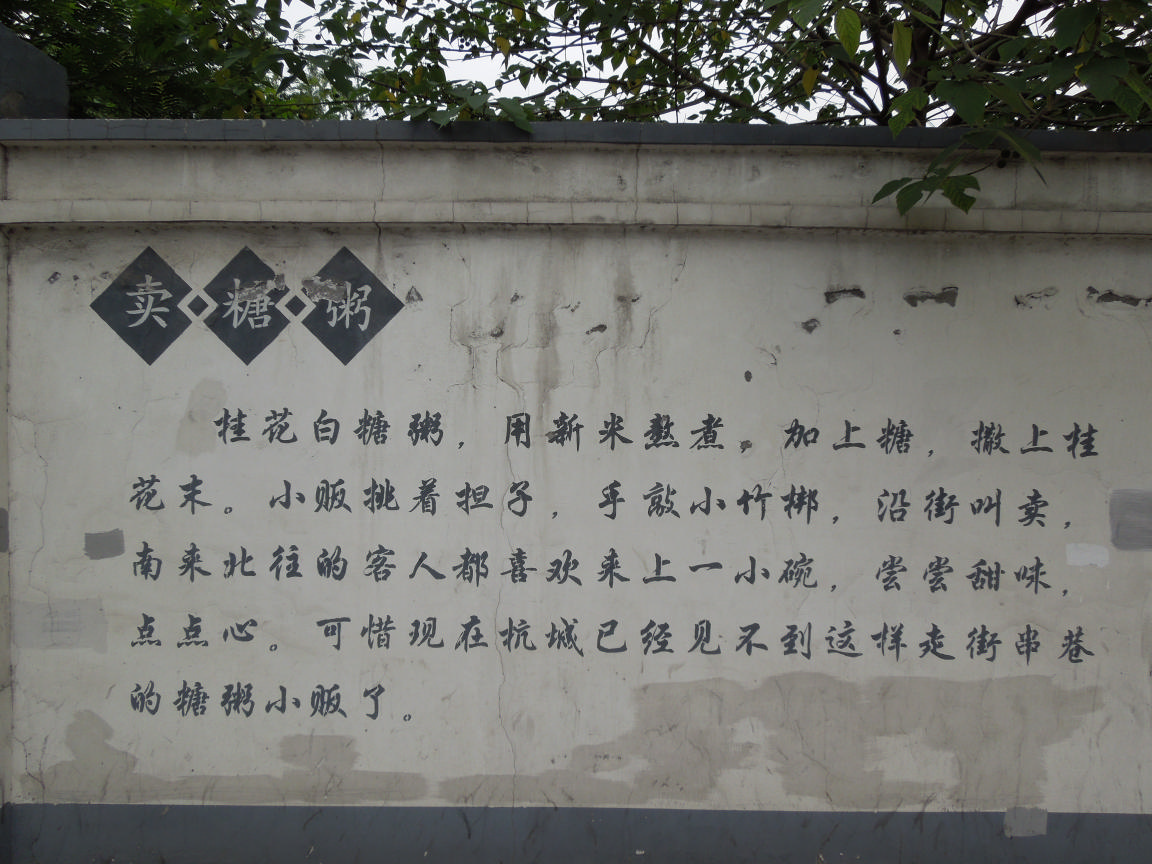 卖糖粥
桂花白糖粥，用新米熬煮，加上糖，撒上桂
花末。小贩挑着担子，手敲小竹梆，沿街叫卖，
南来北往的客人都喜欢来上一小碗，尝尝甜味，
点点心。可惜现在杭城已经见不到这样走街串巷
的糖粥小贩了。